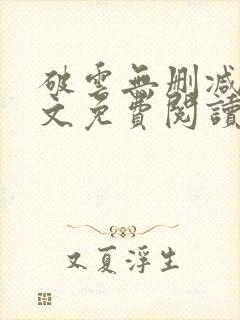 破雲無刪減
文免費閱讀
又夏浮生